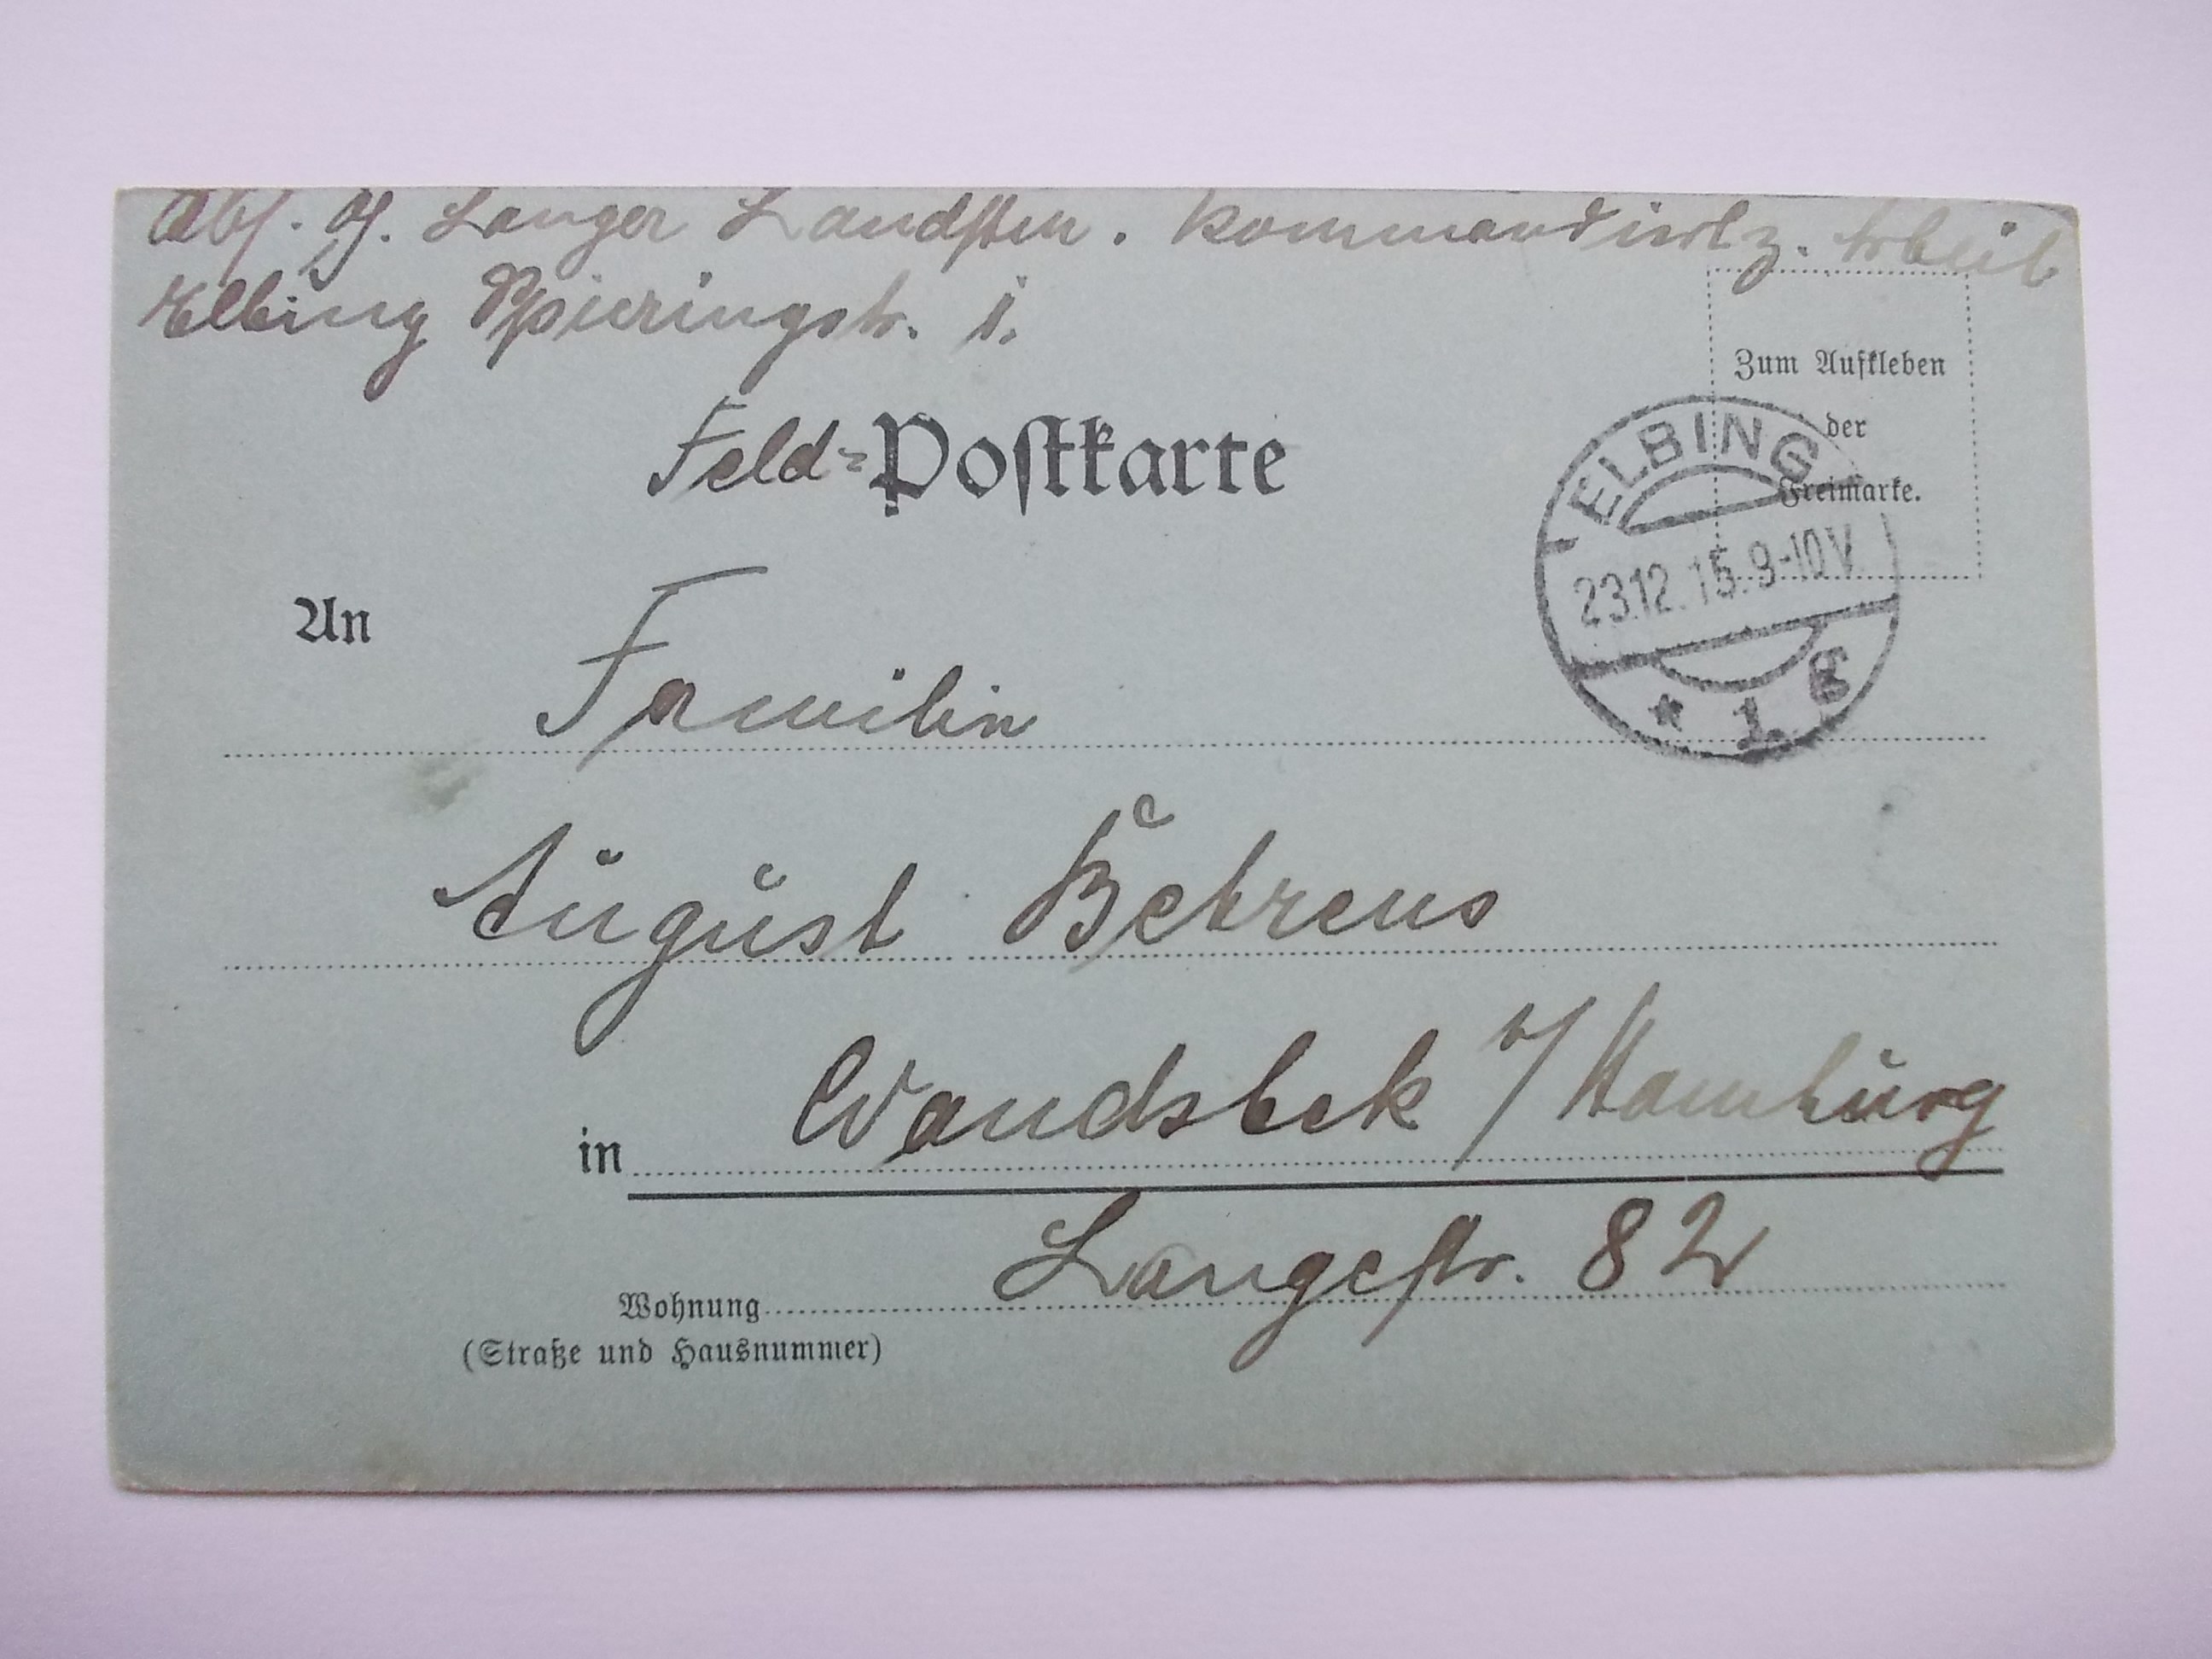 Abs. G. Langer Landstm. kommandiert z. Arbeit
Elbing Spieringstr. 1.
Zum Aufkleben
der
Freimarke.
Feld-Postkarte
ELBING
23.12.15.9-10V.
* 1 g
An Familie
August Behrens
in Wandsbek b/Hamburg
Wohnung Langestr. 82
(Straße und Hausnummer)